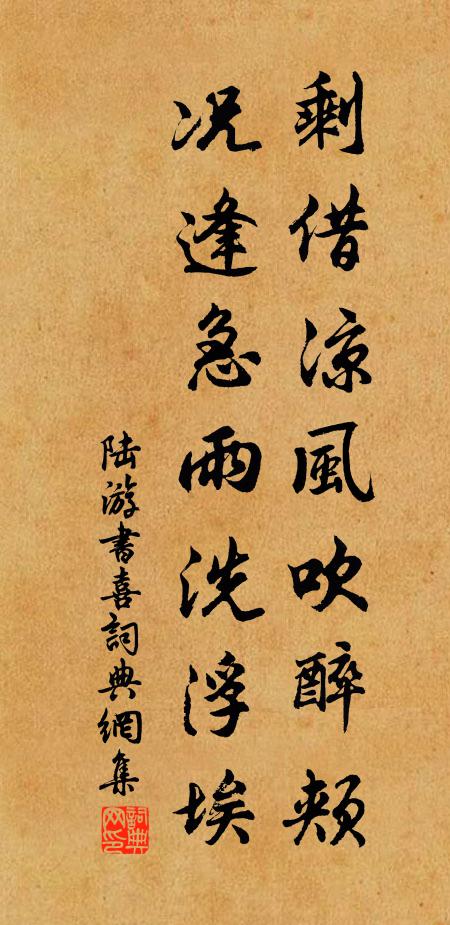 剩借涼風吹醉頰
况逢急雨洗浮埃
陆游書喜詞典網集
詞典网印